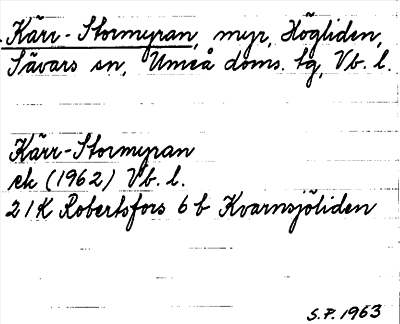 Kärr-Stormyran, myr, Högliden,
Sävars sn, Umeå doms. tg, Vb. l.
Kärr-Stormyran
ek (1962) Vb. l.
21K Robertsfors 6b Kvarnsjöliden
S.P. 1963